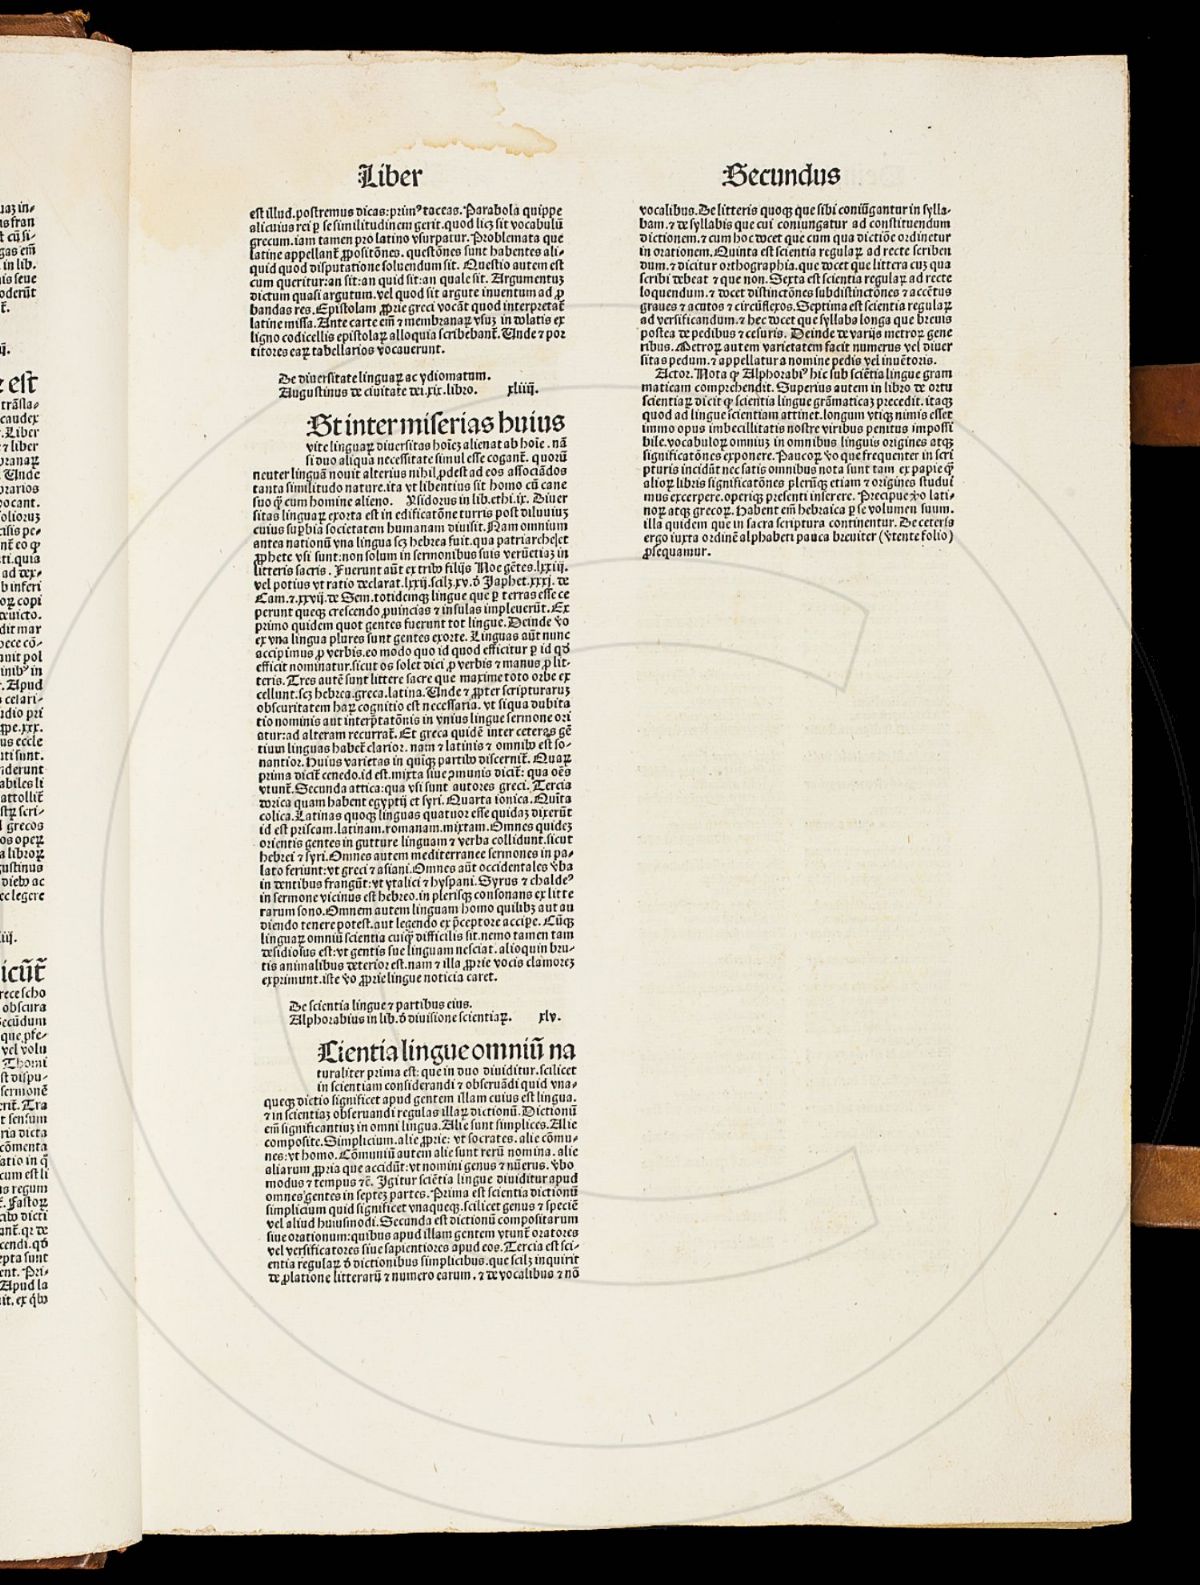 Liber
Secundus
est illud. postremus dicas: primꝰ taceas. Parabola quippe
alicuius rei ꝑ se similitudinem gerit. quod licꝫ sit vocabulū
grecum. iam tamen pro latino vsurpatur. Problemata que
latine appellant̄ ꝓpositōnes. questōnes sunt habentes ali-
quid quod disputatione soluendum sit. Questio autem est
cum queritur: an sit: an quid sit: an quale sit. Argumentuꝫ
dictum quasi argutum. vel quod sit argute inuentum ad ꝓ
bandas res. Epistolam ꝓprie greci vocāt quod interpretat̄
latine missa. Ante carte em̄ ⁊ membranaꝝ vsuꝫ in dolatis ex
ligno codicellis epistolaꝝ alloquia scribebant̄. Unde ⁊ por
titores eaꝝ tabellarios vocauerunt.
De diuersitate linguaꝝ ac ydiomatum.
Augustinus de ciuitate dei. xix. libro. xliiij.
St inter miserias huius
vite linguaꝝ diuersitas hoīeꝫ alienat ab hoīe. nā
si duo aliqua necessitate simul esse cogant̄. quorū
neuter linguā nouit alterius nihil ꝓdest ad eos associādos
tanta similitudo nature. ita vt libentius sit homo cū cane
suo ꝙ̄ cum homine alieno. Ysidorus in lib. ethi. ix. Diuer
sitas linguaꝝ exorta est in edificatōne turris post diluuiuꝫ
cuius suꝑbia societatem humanam diuisit. Nam omnium
antea nationū vna lingua scꝫ hebrea fuit. qua patriarche ⁊
ꝓphete vsi sunt: non solum in sermonibus suis veruꝫetiaꝫ in
litteris sacris. Fuerunt aūt ex tribꝰ filijs Noe gētes. lxxiij.
vel potius vt ratio declarat. lxxij. scilꝫ. xv. ꝺ̄ Japhet. xxxj. de
Cam. ⁊. xxvij. de Sem. totidemqꝫ lingue que ꝑ terras esse ce
perunt queqꝫ crescendo ꝓuincias ⁊ insulas impleuerūt. Ex
primo quidem quot gentes fuerunt tot lingue. Deinde v̄o
ex vna lingua plures sunt gentes exorte. Linguas aūt nunc
accipimus ꝓ verbis. eo modo quo id quod efficitur ꝑ id qꝺ̄
efficit nominatur. sicut os solet dici ꝓ verbis ⁊ manus ꝓ lit-
teris. Tres autē sunt littere sacre que maxime toto orbe ex
cellunt. scꝫ hebrea. greca. latina. Unde ⁊ ꝓpter scripturaruꝫ
obscuritatem haꝝ cognitio est necessaria. vt si qua dubita
tio nominis aut interp̄tatōnis in vnius lingue sermone ori
atur: ad alteram recurrat̄. Et greca quidē inter ceteras gē
tium linguas habet̄ clarior. nam ⁊ latinis ⁊ omnibꝰ est so-
nantior. Huius varietas in quinqꝫ partibꝰ discernit̄. Quaꝝ
prima dicit̄ cenedo. id est. mixta siue ꝯmunis dicit̄: qua oēs
vtunt̄. Secunda attica: qua vsi sunt autores greci. Tercia
dorica quam habent egyptij et syri. Quarta ionica. Quīta
eolica. Latinas quoqꝫ linguas quatuor esse quidaꝫ dixerūt
id est priscam. latinam. romanam. mixtam. Omnes quideꝫ
orientis gentes in gutture linguam ⁊ verba collidunt. sicut
hebrei ⁊ syri. Omnes autem mediterranee sermones in pa-
lato feriunt: vt greci ⁊ asiani. Omnes aūt occidentales v̄ba
in dentibus frangūt: vt ytalici ⁊ hyspani. Syrus ⁊ chaldeꝰ
in sermone vicinus est hebreo. in plerisqꝫ consonans ex litte
rarum sono. Omnem autem linguam homo quilibꝫ aut au
diendo tenere potest. aut legendo ex p̄ceptore accipe. Cūqꝫ
linguaꝝ omniū scientia cuiqꝫ difficilis sit. nemo tamen tam
desidiosus est: vt gentis sue linguam nesciat. alioquin bru-
tis animalibus deterior est. nam ⁊ illa ꝓprie vocis clamoreꝫ
exprimunt. iste v̄o ꝓprie lingue noticia caret.
De scientia lingue ⁊ partibus eius.
Alphorabius in lib. ꝺ̄ diuisione scientiaꝝ. xlv.
Cientia lingue omniū na
turaliter prima est: que in duo diuiditur. scilicet
in scientiam considerandi ⁊ obseruādi quid vna-
queqꝫ dictio significet apud gentem illam cuius est lingua.
⁊ in scientiaꝫ obseruandi regulas illaꝝ dictionū. Dictionū
em̄ significantiuꝫ in omni lingua. Alie sunt simplices. Alie
composite. Simplicium. alie ꝓprie: vt socrates. alie cōmu-
nes: vt homo. Cōmuniū autem alie sunt rerū nomina. alie
aliarum ꝓpria que accidūt: vt nomini genus ⁊ nūerus. v̄bo
modus ⁊ tempus ⁊c̄. Igitur sciētia lingue diuiditur apud
omnes gentes in septeꝫ partes. Prima est scientia dictionū
simplicium quid significet vnaqueqꝫ. scilicet genus ⁊ speciē
vel aliud huiusmodi. Secunda est dictionū compositarum
siue orationum: quibus apud illam gentem vtunt̄ oratores
vel versificatores siue sapientiores apud eos. Tercia est sci-
entia regulaꝝ ꝺ̄ dictionibus simplicibus. que scilꝫ inquirit
de ꝓlatione litterarū ⁊ numero earum. ⁊ de vocalibus ⁊ nō
vocalibus. De litteris quoqꝫ que sibi coniūgantur in sylla-
bam. ⁊ de syllabis que cui coniungatur ad constituendum
dictionem. ⁊ cum hoc docet que cum qua dictiōe ordinetur
in orationem. Quinta est scientia regulaꝝ ad recte scriben
dum. ⁊ dicitur orthographia. que docet que littera cuꝫ qua
scribi debeat ⁊ que non. Sexta est scientia regulaꝝ ad recte
loquendum. ⁊ docet distinctōnes subdistinctōnes ⁊ accētus
graues ⁊ acutos ⁊ circūflexos. Septima est scientia regulaꝝ
ad versificandum. ⁊ hec docet que syllaba longa que breuis
postea de pedibus ⁊ cesuris. Deinde de varijs metroꝝ gene
ribus. Metroꝝ autem varietatem facit numerus vel diuer
sitas pedum. ⁊ appellatur a nomine pedis vel inuētoris.
Actor. Nota ꝙ Alphorabiꝰ hic sub sciētia lingue gram
maticam comprehendit. Superius autem in libro de ortu
scientiaꝝ dicit ꝙ scientia lingue grāmaticaꝫ precedit. itaqꝫ
quod ad lingue scientiam attinet. longum vtiqꝫ nimis esset
immo opus imbecillitatis nostre viribus penitus impossi
bile. vocabuloꝝ omniuꝫ in omnibus linguis origines atqꝫ
significatōnes exponere. Paucoꝝ v̄o que frequenter in scri
pturis incidūt nec satis omnibus nota sunt tam ex papie ꝙ̄
alioꝝ libris significatōnes plerūqꝫ etiam ⁊ origines studui
mus excerpere. operiqꝫ presenti inserere. Precipue v̄o lati-
noꝝ atqꝫ grecoꝝ. Habent em̄ hebraica ꝑ se volumen suum.
illa quidem que in sacra scriptura continentur. De ceteris
ergo iuxta ordinē alphabeti pauca breuiter (vtente solio)
ꝓsequamur.